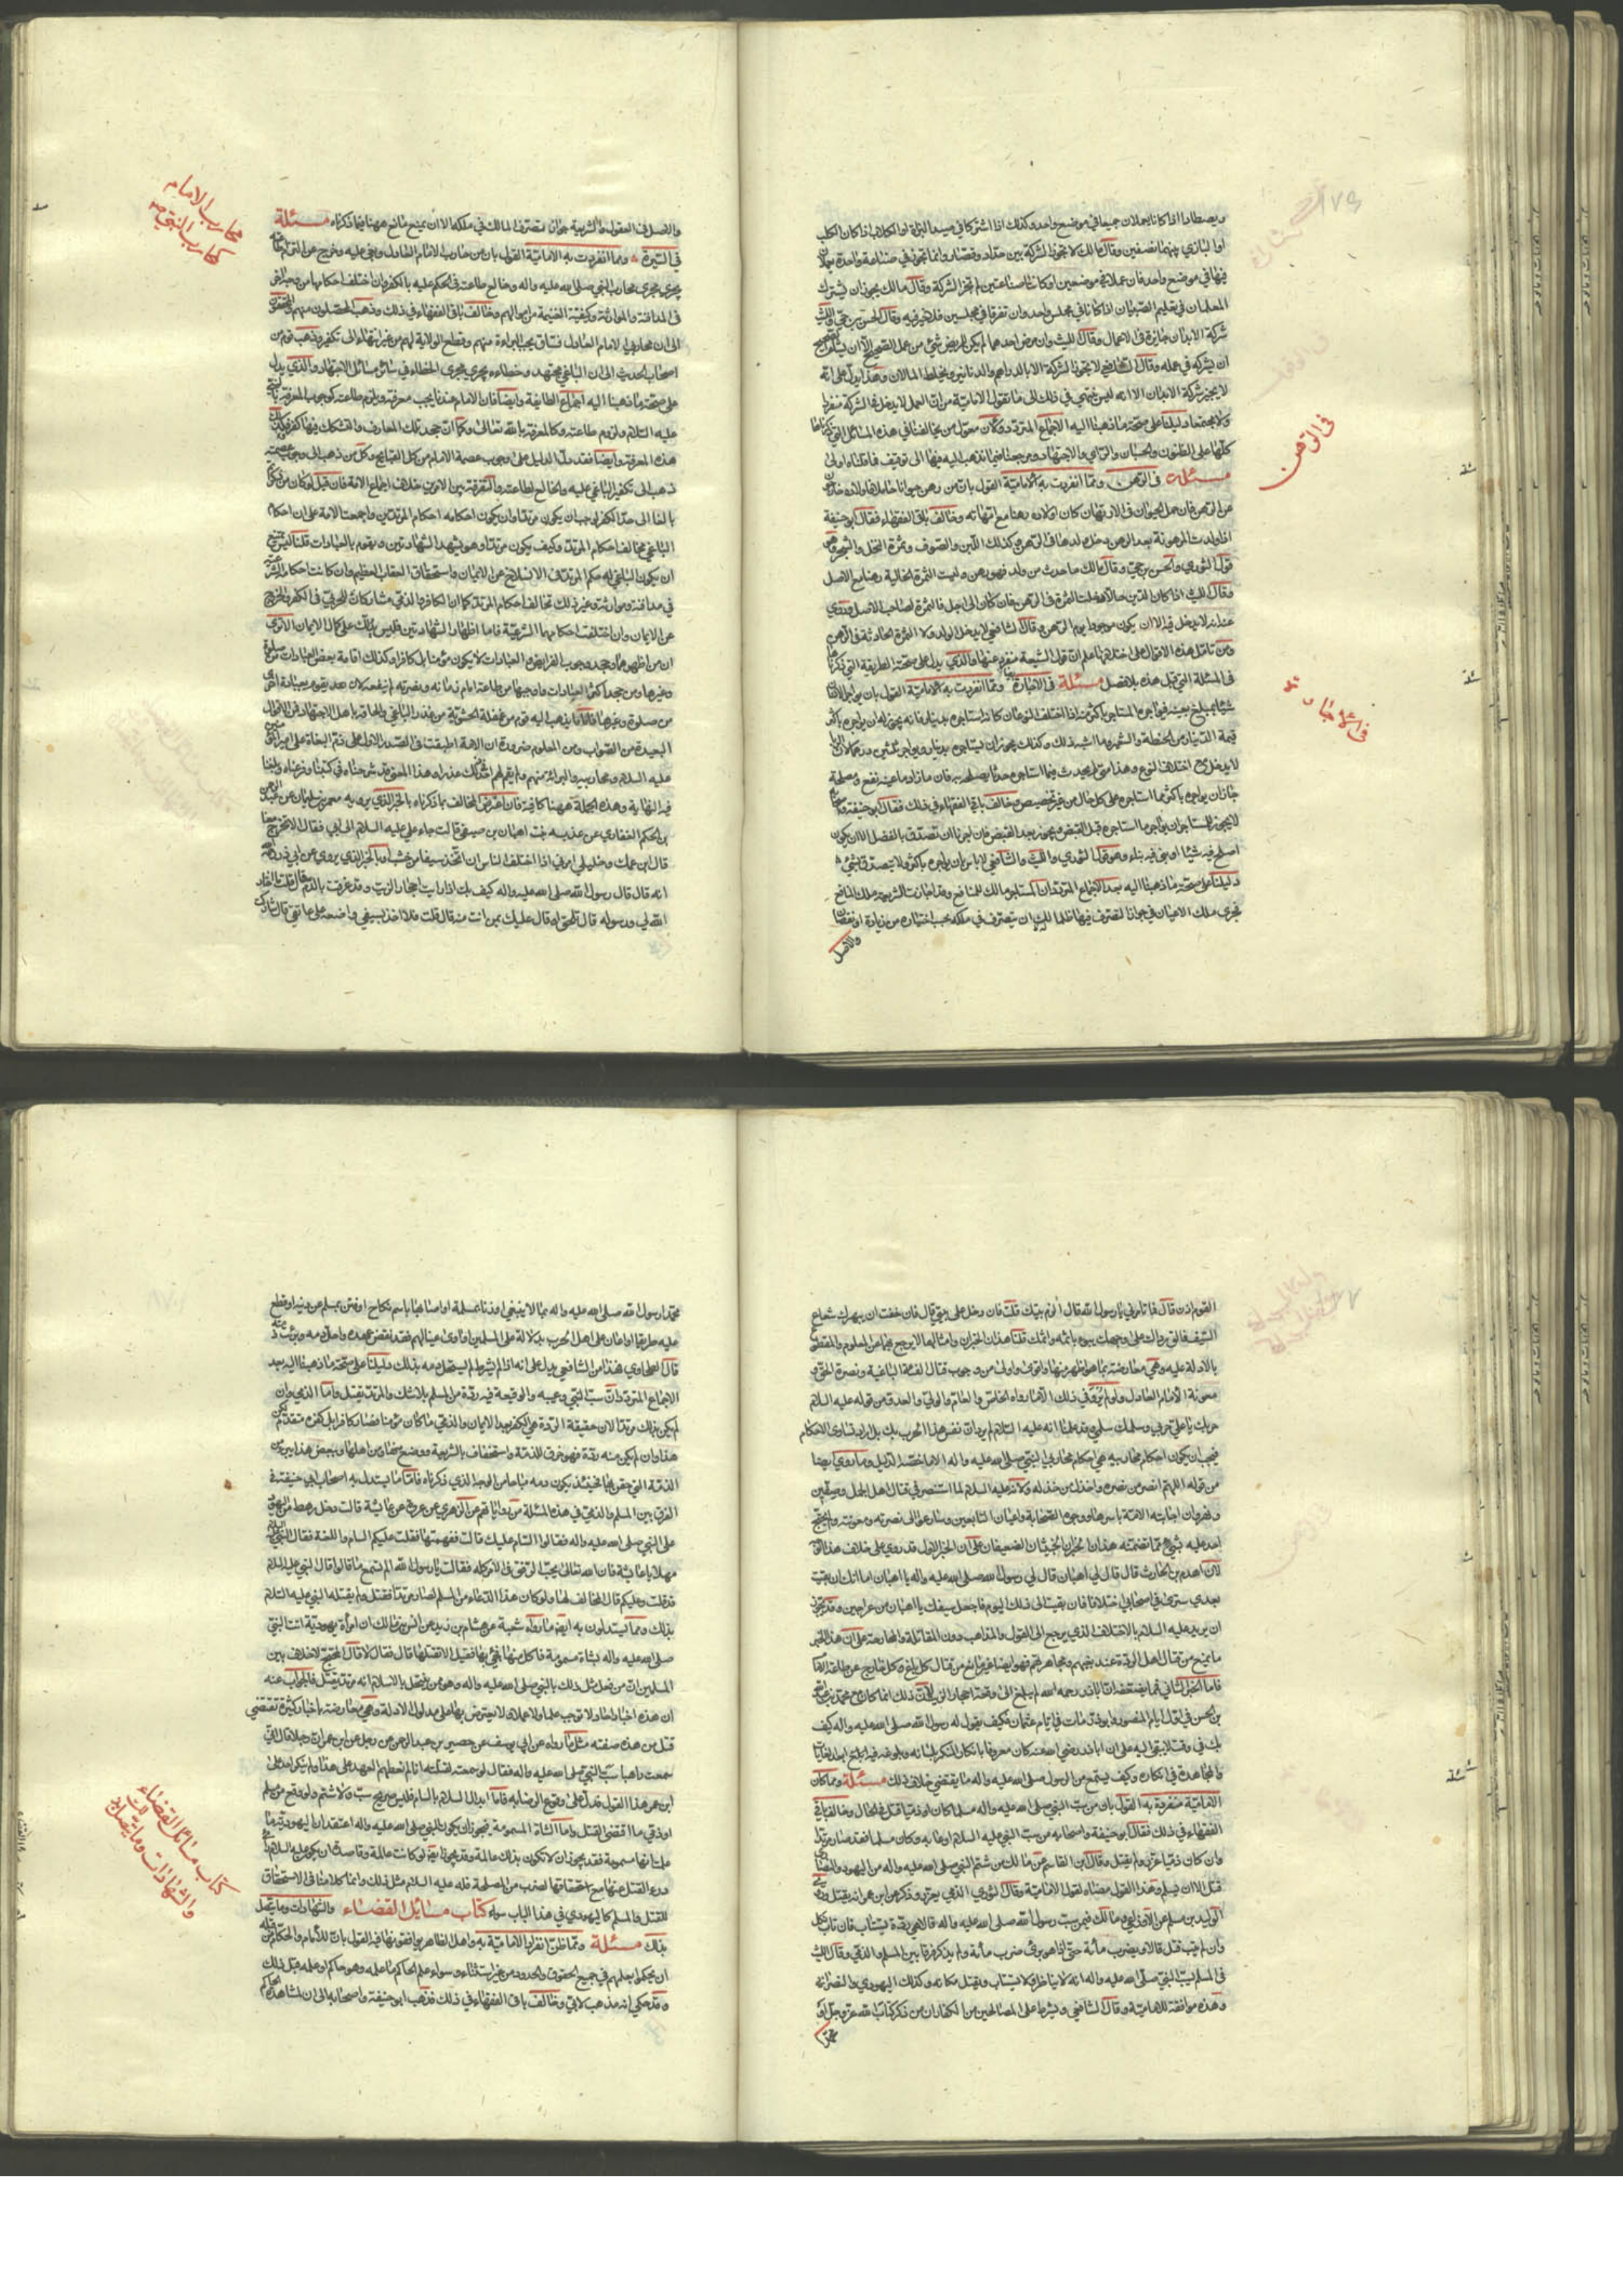 ويصطادا اذا كانا يعملان جميعا في موضع واحد وكذلك اذا اشتركا في صيد البزاة او الكلاب اذا كان الكلب
او البازي بينهما نصفين وقال مالك لا تجوز الشركة بين حداد وقصار وانما تجوز في صناعة واحدة يعملان
فيها في موضع واحد فان عملا في موضعين او كانا صناعتين لم تجز الشركة وقال مالك يجوز ان يشترك
المعلمان في تعليم الصبيان اذا كانا في مجلس واحد وان تفرقا في مجلسين فلا خير فيه وقال الحسن بن حي والليث
شركة الابدان جايزة في الاعمال وقال الليث وان مرض احدهما لم يكن للمريض شئ من عمل الصحيح الا ان يشاء
ان يشركه في عمله وقال الشافعي لا تجوز الشركة الا بالدراهم والدنانير ويخلط المالان وهذا يدل على انه
لا يجيز شركة الابدان الا انه ليس ينتهي في ذلك الى ما تقوله الامامية من ان العمل لا يدخل في الشركة منفردا
ولا مجتمعا دليلنا على صحة ما ذهبنا اليه الاجماع المتردد وكان معول من يخالفنا في هذه المسائل التي ذكرناها
كلها على الظنون والحسبان والراي والاجتهاد ومرجعنا فيما نذهب اليه فيها الى توقيف فما قلناه اولى
مسئلة في الرهن ومما انفردت به الامامية القول بان من رهن حيوانا حاملا فاولاده خارجون
عن الرهن فان حمل الحيوان في الارتهان كان اولاده رهنا مع امهاته وخالف باقي الفقهاء فقال ابو حنيفة
اذا ولدت المرهونة بعد الرهن دخل ولدها في الرهن وكذلك اللبن والصوف وثمرة النخل والشجر وهو
قول الثوري والحسن بن حي وقال مالك ما حدث من ولد فهو رهن وليست الثمرة الحالية رهنا مع الاصل
وقال الليث اذا كان الدين حالا دخلت الثمرة في الرهن فان كان الى اجل فالثمرة لصاحب الاصل وروي
عنه انه لا يدخل فيه الا ان يكون موجودا يوم الرهن وقال الشافعي لا يدخل الولد ولا الثمرة الحادثة في الرهن
ومن تامل هذه الاقوال على اختلافها علم ان قول الشيعة منفرد عنها والذي يدل على صحته الطريقة التي ذكرناها
في المسئلة التي قبل هذه بلا فصل مسئلة في الاجارة ومما انفردت به الامامية القول بان يواجر الانسان
شيئا بمبلغ بعينه فيواجره المستاجر باكثر منه اذا اختلف النوعان كانه استاجره بدينار فانه يجوز له ان يواجره باكثر
قيمة الدينار من الحنطة والشعير وما اشبه ذلك وكذلك يجوز ان يستاجره بدينار ويواجر بثمنين درهما لان الربا
لا يدخل مع اختلاف النوع وهذا متى لم يحدث فيما استاجره حدثا يصلحه به فان مازاد ما عينه نفع ومصلحة
جاز ان يواجره باكثر مما استاجره على كل حال من غير تخصيص وخالف باقي الفقهاء في ذلك فقال ابو حنيفة
لا يجوز للمستاجر ان يواجر ما استاجره قبل القبض ويجوز بعد القبض فان اجرنا ان تصدق بالفضل الا ان يكون
اصلح فيه شيئا او بنى فيه بناء وهو قول الثوري والليث والشافعي لا باس بان يواجره باكثر ولا يتصدق بشئ
دليلنا على صحة ما ذهبنا اليه بعد الاجماع المتردد ان المستاجر مالك للمنافع وقد اجازت الشريعة ملك المنافع
مجرى ملك الاعيان في جواز التصرف فيها فللمالك ان يتصرف في ملكه بحسب اختياره من زيادة او نقصان
والاصل
في الرهن
في الاجارة
والاصل في العقول والشريعة جواز تصرف المالك في ملكه الا ان يمنع مانع وههنا فيما ذكرناه مسئلة
في السيرة ومما انفردت به الامامية القول بان من حارب الامام العادل وبغى عليه وخرج عن التزام طاعته
يجري مجرى محارب النبي صلى الله عليه واله وخالع طاعته في الحكم عليه بالكفر وان اختلف احكامهما من وجه اخر
في المدافنة والموارثة وكيفية الغنيمة من اموالهم وخالف باقي الفقهاء في ذلك وذهب المحصلون منهم والمحققون
الى ان محاربي الامام العادل فساق يجب البراءة منهم وقطع الولاية لهم من غير انتهاء الى تكفير وذهب قوم من
اصحاب الحديث الى ان الباغي مجتهد وخطاءه يجري مجرى الخطاء في سائر مسائل الاجتهاد والذي يدل
على صحة ما ذهبنا اليه اجماع الطايفة وايضا فان الامام عندنا يجب معرفته ويلزم طاعته كوجوب المعرفة بالنبي
عليه السلام ولزوم طاعته وكالمعرفة بالله تعالى وكما ان جحد تلك المعارف والتشكك فيها كفر فكذلك
هذه المعرفة وايضا فقد دل الدليل على وجوب عصمة الامام من كل القبايح وكل من ذهب الى وجوب عصمته
ذهب الى تكفير الباغي عليه والخالع لطاعته والتفرقة بين الامرين خلاف اجماع الامة فان قيل لو كان من ذكرتم
بالغا الى حد الكفر لوجب ان يكون مرتدا وان يكون احكامه احكام المرتدين واجمعت الامة على ان احكام
الباغي تخالف احكام المرتد وكيف يكون مرتدا وهو يشهد الشهادتين ويقوم بالعبادات قلنا ليس يمتنع
ان يكون الباغي له حكم المرتد في الانسلاخ عن الايمان واستحقاق العقاب العظيم وان كانت احكامه الشرعية
في مدافنة وموارثة وغير ذلك تخالف احكام المرتد كما ان الكافر الذمي مشارك للحربي في الكفر والخروج
عن الايمان وان اختلفت احكامهما الشرعية فاما اظهار الشهادتين فليس بدال على كمال الايمان الا ترى
ان من اظهرهما وجحد وجوب الفرايض والعبادات لا يكون مؤمنا بل كافرا وكذلك اقامة بعض العبادات من صلوة
وغيرها ومن جحد اكثر العبادات واوجبها من طاعة امام زمانه ونصرته لم ينفعه ان يقوم بعبادة اخرى
من صلوة وغيرها فاما ما يذهب اليه قوم من غفلة الحشوية من عذر الباغي والحاقه باهل الاجتهاد فمن الاقوال
البعيدة من الصواب ومن المعلوم ضرورة ان الامة اطبقت في الصدر الاول على ذم البغاة على امير المؤمنين
عليه السلام ومحاربيه والبراءة منهم ولم يقم لهم احد عذرا وهذا المعنى قد شرحناه في كتبنا وفرعناه وبلغنا
فيه النهاية وهذه الجملة ههنا كافية فان اعترض المخالف بما ذكرناه بالخبر الذي يرويه معمر بن سليمان عن عبد الرحمن
بن الحكم الغفاري عن عديسة بنت اهبان بن صيفي قالت جاء علي عليه السلام الى ابي فقال الا تخرج معنا
قال ابن عمك وخليلي امرني اذا اختلف الناس ان اتخذ سيفا من خشب وبالخبر الذي يروى عن ابي ذر رحمه الله
انه قال قال رسول الله صلى الله عليه واله كيف بك اذا رايت احجار الزيت وقد غرقت بالدم قال قلت ما اختار
الله لي ورسوله قال تلحق او قال عليك بمن انت منه قال قلت فلا اخذ بسيفي واضعه على عاتقي قال شاركت
محارب الامام
كمحارب النبي ص
القوم اذن قال فما تامرني يا رسول الله قال الزم بيتك قلت فان دخل على بيتي قال فان خفت ان يبهرك شعاع
السيف فالق رداك على وجهك يبوء باثمه واثمك قلنا هذان الخبران وامثالهما لا يرجع بهما عن المعلوم والمقطوع
بالادلة عليه وهي معارضة بما هو اظهر منها واقوى واولى من وجوب قتال الفئة الباغية ونصرة الحق و
معونة الامام العادل ولو لم يرو في ذلك الا ما رواه الخاص والعام والولي والعدو من قوله عليه السلام
حربك يا علي حربي وسلمك سلمي وقد علمنا انه عليه السلام لم يرد ان نفس هذه الحرب تلك بل اراد تساوي الاحكام
فيجب ان يكون احكام محاربيه هي احكام محاربي النبي صلى الله عليه واله الا ما خصه الدليل وما روي ايضا
من قوله اللهم انصر من نصره واخذل من خذله ولانه عليه السلام لما استنصر في قتال اهل الجمل وصفين
والنهروان اجابته الامة باسرها ووجوه الصحابة واعيان التابعين وسارعوا الى نصرته ومعونته ولم يحتج
احد عليه بشئ مما تضمنه هذان الخبران الخبيثان الضعيفان على ان الخبر الاول قد روي على خلاف هذا الوجه
لان اهدم بن الحارث قال قال لي اهبان قال لي رسول الله صلى الله عليه واله يا اهبان اما انك ان بقيت
بعدي سترى في اصحابي اختلافا فان بقيت الى ذلك اليوم فاجعل سيفك يا اهبان من عراجين وقد يجوز
ان يريد عليه السلام بالاختلاف الذي يرجع الى القول والمذاهب دون المقاتلة والمحاربة على ان هذا الخبر
ما يمنع من قتال اهل الردة عند بغيهم ومجاهرتهم فهو ايضا غير مانع من قتال كل باغ وكل خارج عن طاعة الامام
فاما الخبر الثاني فمما يضعفه ان اباذر رحمه الله لم يبلغ الى وقعة احجار الزيت لان ذلك انما كان مع محمد بن عبد الله
بن الحسن في اول ايام المنصور وابوذر مات في ايام عثمان فكيف يقول له رسول الله صلى الله عليه واله كيف
بك في وقت لا يبقى اليه على ان اباذر رضي الله عنه كان معروفا بانكار المنكر بلسانه وبلوغه فيه ابلغ الغايات
والمجاهدة في انكاره وكيف يسمع من الرسول صلى الله عليه واله ما يقتضي خلاف ذلك مسئلة ومما كان
الامامية منفردة به القول بان من سب النبي صلى الله عليه واله مسلما كان او ذميا قتل في الحال وخالف باقي
الفقهاء في ذلك فقال ابو حنيفة واصحابه من سب النبي عليه السلام او عابه وكان مسلما فقد صار مرتدا
وان كان ذميا عزر ولم يقتل وقال ابن القاسم عن مالك من شتم النبي صلى الله عليه واله من اليهود والنصارى
قتل الا ان يسلم وهذا القول مضاه لقول الامامية وقال الثوري الذمي يعزر وذكر عن ابن عمر انه يقتل وروى
الوليد بن مسلم عن الاوزاعي ومالك فيمن سب رسول الله صلى الله عليه واله قالا هي ردة يستتاب فان تاب نكل
وان لم يتب قتل قالا ويضرب مائة حتى اذا هو برئ ضرب مائة ولم يذكر فرقا بين المسلم والذمي وقال الليث
في المسلم يسب النبي صلى الله عليه واله انه لا يناظر ولا يستتاب ويقتل مكانه وكذلك اليهودي والنصرانى
وهذه موافقة للامامية وقال الشافعي ويشرط على المصالحين من الكفار ان من ذكر كتاب الله عز وجل او
محمدا
محمدا رسول الله صلى الله عليه واله بما لا ينبغي او زنا بمسلمة او اصابها باسم نكاح او فتن مسلما عن دينه او قطع
عليه طريقا او اعان على اهل الحرب بدلالة على المسلمين او آوى عينا لهم فقد نقض عهده واحل دمه وبرئت ذمته
قال الطحاوي فهذا من الشافعي يدل على انه اذا لم يشرط لم يستحل دمه بذلك دليلنا على صحة ما ذهبنا اليه بعد
الاجماع المتردد ان سب النبي وعيبه والوقيعة فيه ردة من المسلم بلا شك والمرتد يقتل واما الذمي وان
لم يكن بذلك مرتدا لان حقيقة الردة هي الكفر بعد الايمان والذمي ما كان مؤمنا فصار كافرا بل كفره متقدم
هذا وان لم يكن منه ردة فهو خرق للذمة واستخفاف بالشريعة ووضع منها ومن اهلها وببعض هذا يبرء من
الذمة التي حقن بها فحينئذ يكون دمه مباحا من الوجه الذي ذكرناه فاما ما يستدل به اصحاب ابي حنيفة في
الفرق بين المسلم والذمي في هذه المسئلة من روايتهم عن الزهري عن عروة عن عائشة قالت دخل رهط من اليهود
على النبي صلى الله عليه واله فقالوا السام عليك قالت ففهمتها فقلت عليكم السام واللعنة فقال النبي عليه السلام
مهلا يا عائشة فان الله تعالى يحب الرفق في الامر كله فقالت يا رسول الله الم تسمع ما قالوا قال النبي عليه السلام
قد قلت وعليكم قال المخالف لها ولو كان هذا الدعاء من المسلم لصار مرتدا فقتل ولم يقتله النبي عليه السلام
بذلك ومما يستدلون به ايضا ما رواه شعبة عن هشام بن زيد عن انس بن مالك ان امرأة يهودية اتت النبي
صلى الله عليه واله بشاة مسمومة فاكل منها فجئ بها فقيل الا تقتلها قال فقال لا قال المحتج لا خلاف بين
المسلمين ان من فعل مثل ذلك بالنبي صلى الله عليه واله وهو ممن ينتحل بالاسلام انه مرتد يقتل فالجواب عنه
ان هذه اخبار احاد لا توجب علما ولا عملا ولا يعترض بها على مدلول الادلة وهي معارضة باخبار كثيرة تقتضي
قتل من هذه صفته مثل ما رواه عن ابي يوسف عن حصين بن عبد الرحمن عن رجل عن ابن عمر ان رجلا قال اني
سمعت راهبا سب النبي صلى الله عليه واله فقال لو سمعته لقتلته انا لم نعطهم العهد على هذا ولم ينكر احد على
ابن عمر هذا القول فدل على وقوع الرضا به فاما ابدال السلام بالسام فليس بصريح سب ولا شتم ولو وقع من مسلم
او ذمي ما اقتضى القتل واما الشاة المسمومة فيجوز ان يكون النبي صلى الله عليه واله اعتقد ان اليهودية ما
علمت انها مسمومة فقد يجوز ان لا تكون بذلك عالمة وقد يجوز ايضا لو كانت عالمة وقاصدة ان يكون عليه السلام
درء القتل عنها مع استحقاقها لضرب من المصلحة فله عليه السلام مثل ذلك وانما كلامنا في الاستحقاق
للقتل والمسلم كاليهودي في هذا الباب سواء كتاب مسائل القضاء والشهادات وما يتصل
بذلك مسئلة ومما ظن انفراد الامامية به واهل الظاهر يوافقونها فيه القول بان للامام والحكام من قبله
ان يحكموا بعلمهم في جميع الحقوق والحدود من غير استثناء وسواء علم الحاكم ما علمه وهو حاكم او علمه قبل ذلك
وقد حكي انه مذهب لابي ثور وخالف باقي الفقهاء في ذلك فذهب ابو حنيفة واصحابه الى ان ما شاهده الحاكم
كتاب مسائل القضاء
والشهادات وما يتصل بذلك